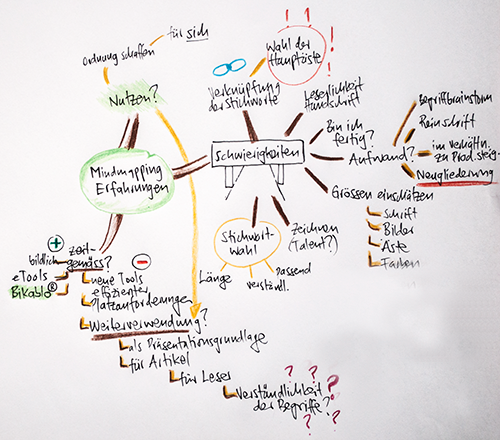 für sich
Ordnung schaffen
Nutzen?
Mindmapping
Erfahrungen
Wahl der
Hauptäste
!
!
!
Verknüpfung
der Stichworte
Leserlichkeit
Handschrift
Schwierigkeiten
Bin ich
fertig?
Aufwand?
Begriffbrainstorm
Reinschrift
im verhältn.
zu Prod.steig.
Neugliederung
Grössen einschätzen
Schrift
Bilder
Äste
Farben
Zeichnen
(Talent?)
Stichwort-
wahl
Länge
verständl.
passend
zeit-
gemäss?
+
bildlich
eTools
Bikablo®
-
neue Tools
effizienter
Platzanforderungen
Weiterverwendung?
als Präsentationsgrundlage
für Artikel
für Leser
Verständlichkeit
der Begriffe?
? ? ?
? ?